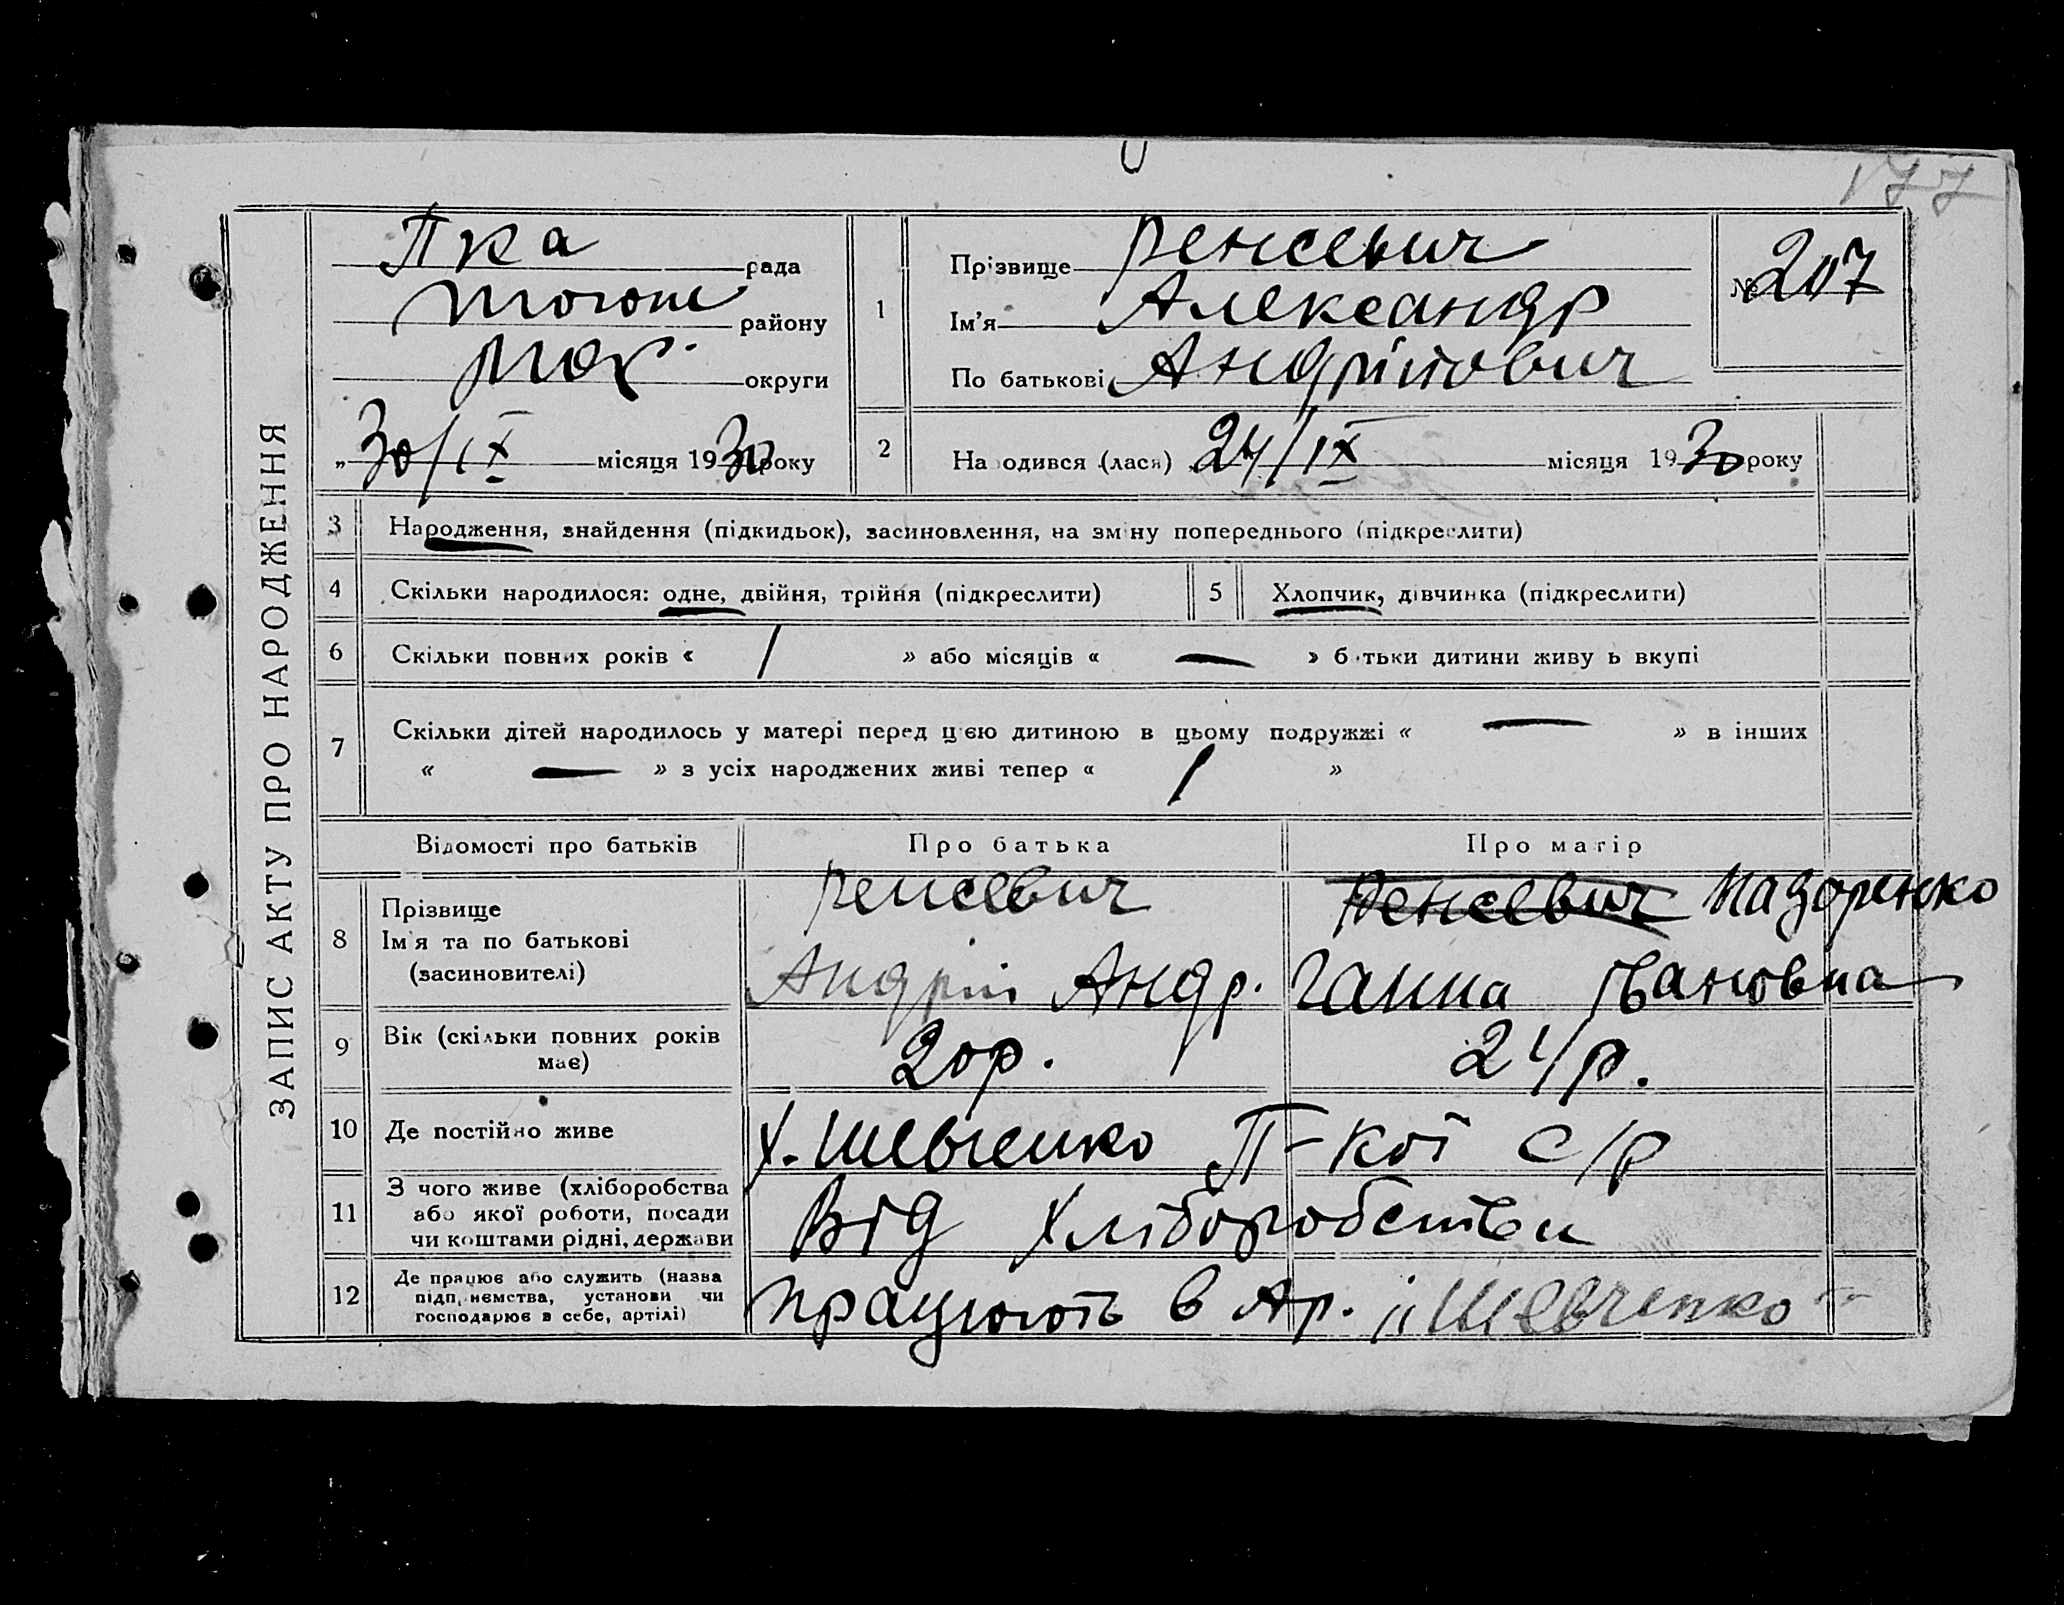 177
ЗАПИС АКТУ ПРО НАРОДЖЕННЯ
Пка рада
району
округи
„30/IX місяця 1930 року
1 Прізвище Ренсевич
Ім’я Александр
По батькові Андрійович
№ 207
2 Народився (лася) 24/IX місяця 1930 року
3 Народження, знайдення (підкидьок), засиновлення, на зміну попереднього (підкреслити)
4 Скільки народилося: одне, двійня, трійня (підкреслити) 5 Хлопчик, дівчинка (підкреслити)
6 Скільки повних років « 1 » або місяців « — » батьки дитини живуть вкупі
7 Скільки дітей народилось у матері перед цією дитиною в цьому подружжі « — » в інших
« — » з усіх народжених живі тепер « 1 »
Відомості про батьків Про батька Про матір
8 Прізвище
Ім’я та по батькові
(засиновителі)
Ренсевич
Андрій Андр.
Ренсевич
Ганна Івановна
9 Вік (скільки повних років
має)
20р. 21/р.
10 Де постійно живе Х. Шевченко П-кої с/р
11 З чого живе (хліборобства
або якої роботи, посади
чи коштами рідні, держави
Від Хліборобства
12 Де працює або служить (назва
підприємства, установи чи
господарює в себе, артілі)
працюють в Ар. „Шевченко“